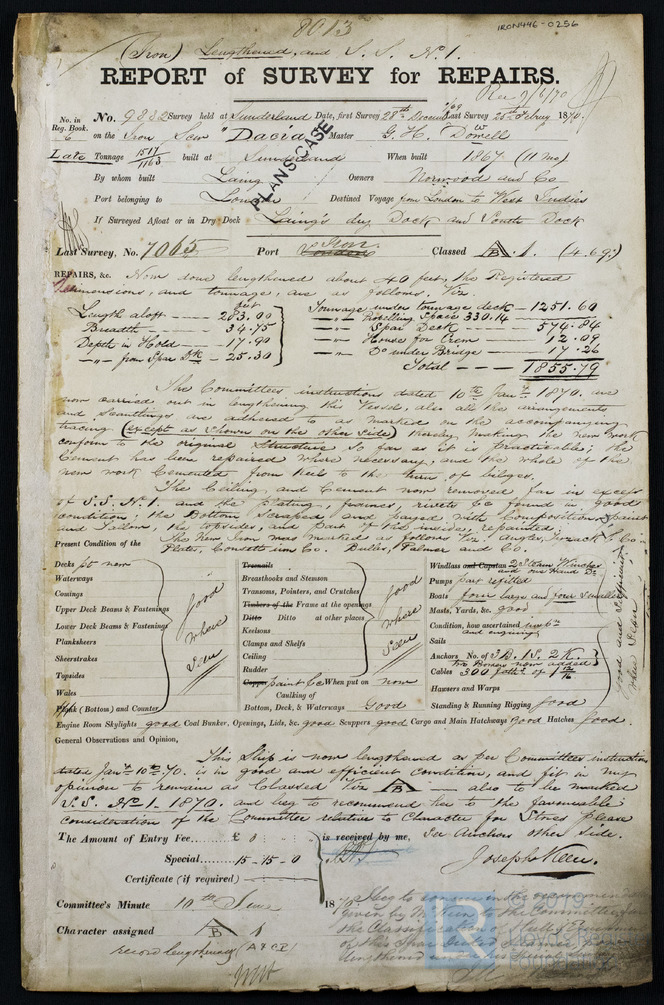 8013
IRON446-0256
(Iron) Lengthened, and S. S. No 1.
REPORT of SURVEY for REPAIRS.
Rec 9/6/70
No. in Reg. Book. No. 9882 Survey held at Sunderland Date, first Survey 28th Decem /69 Last Survey 25th Feby 1870.
6 on the Iron Scw "Dacia" Master G. H. Dowell
Late Tonnage 1517/1163 built at Sunderland When built 1867 (11 mo)
PLANS CASE
By whom built Laing Owners Norwood and Co
Port belonging to London Destined Voyage from London to West Indies
If Surveyed Afloat or in Dry Dock Laing's dry Dock and South Dock
Last Survey, No. 7065 Port London Iron. Classed A B 1. (4.69.)
REPAIRS, &c. Now done lengthened about 40 feet, the Registered
Dimensions, and tonnage, are as follows. Viz.
feet
Length aloft - - - 283.00 Tonnage under tonnage deck - 1251.60
Breadth - - - 34.75 Propelling Space 330.14
Spar Deck - - - 574.84
Depth in Hold - - - 17.90 House for Crew - - 12.09
from Spar Dk - - 25.30 Do under Bridge - - 17.26
Total - - - 1855.79
The Committees instructions dated 10th Jany 1870. are
now carried out in lengthening the Vessel, also all the arrangements
and Scantlings are adhered to as marked on the accompanying
tracing (except as shown on the other side) thereby making the new work
conform to the original Structure so far as is practicable; the
Cement has been repaired where necessary, and the whole of the
new work Cemented from keel to the turn of bilges.
The Ceiling and Cement now removed far in excess
of S.S. No. 1 and the plating, frames, rivets &c found in good
condition; the Bottom scraped and payed with Composition paint
and Tallow, the topsides, and part of the insides, repainted.
The New Iron was marked as follows Viz. Angles,
Plates, Consett Iron Co. Butler, Palmer and Co.
Present Condition of the
Decks pt new
Waterways
Comings
Upper Deck Beams & Fastenings
Lower Deck Beams & Fastenings
Planksheers
Sheerstrakes
Topsides
Wales
Plank (Bottom) and Counter
good where seen
Treenails
Breasthooks and Stemson
Transoms, Pointers, and Crutches
Timbers of the Frame at the openings
Ditto Ditto at other places
Keelsons
Clamps and Shelfs
Ceiling
Rudder
Copper paint &c When put on now
Caulking of
Bottom, Deck, & Waterways Good
good where seen
Windlass and Capstan 2 Steam Winches and one Hand Do
Pumps part refitted
Boats four large and four smaller
Masts, Yards, &c. good
Condition, how ascertained
Sails
Anchors No. of 3 B. 1 S. 2 K.
two Bowers now added
Cables 300 faths of 1 12/16
Hawsers and Warps
Standing & Running Rigging good
good and sufficient when seen
Engine Room Skylights good Coal Bunker, Openings, Lids, &c. good Scuppers good Cargo and Main Hatchways good Hatches good.
General Observations and Opinion,
This Ship is now lengthened as per Committees instructions
dated Jany 10th 70. is in good and efficient condition, and fit in my
opinion to remain as Classed Viz A B - also to be marked
S.S. No. 1 - 1870. and beg to recommend her to the favourable
consideration of the Committee relative to Character for Stores please
see Anchors other side.
The Amount of Entry Fee..... £ 0 : : is received by me,
Special...... 15 - 15 - 0
Joseph Keen.
Certificate (if required)
Committee's Minute 10th June 1870
Character assigned A B 1
record lengthened (A & C P)
© 2019